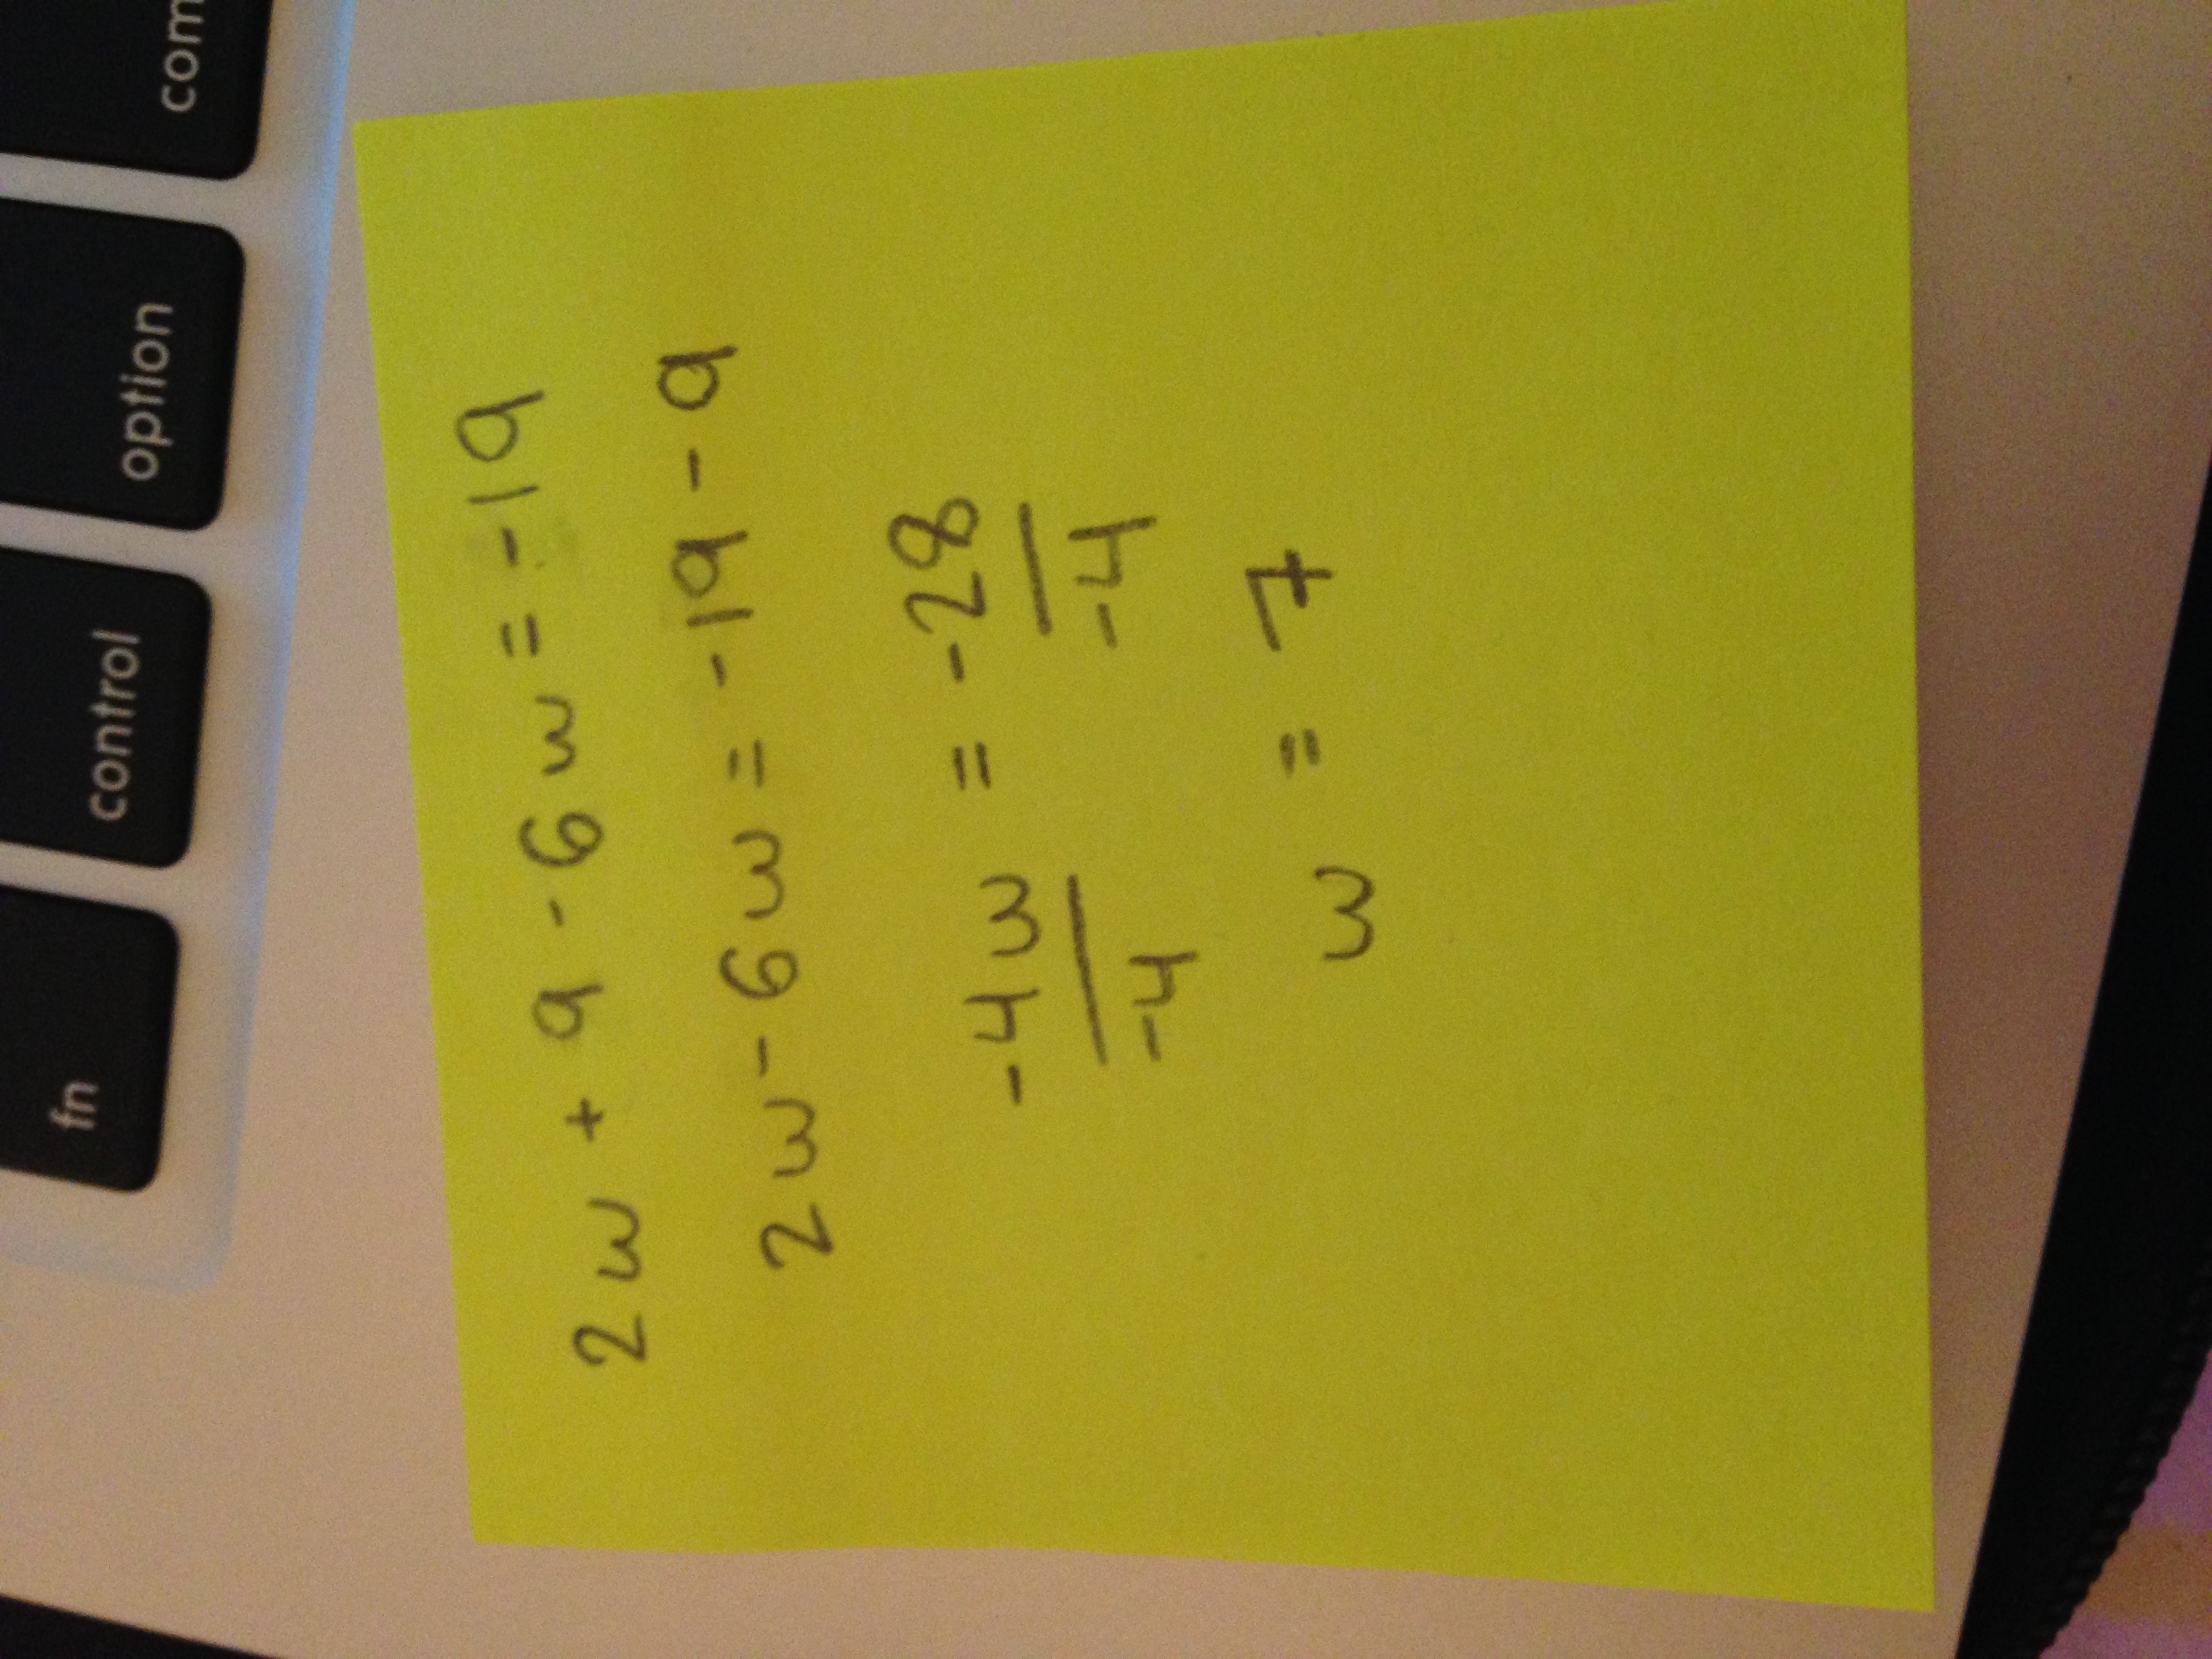 com
option
control
fn
2w + 9 - 6w = -19
2w - 6w = -19 - 9
-4w = -28
-4 -4
w = 7